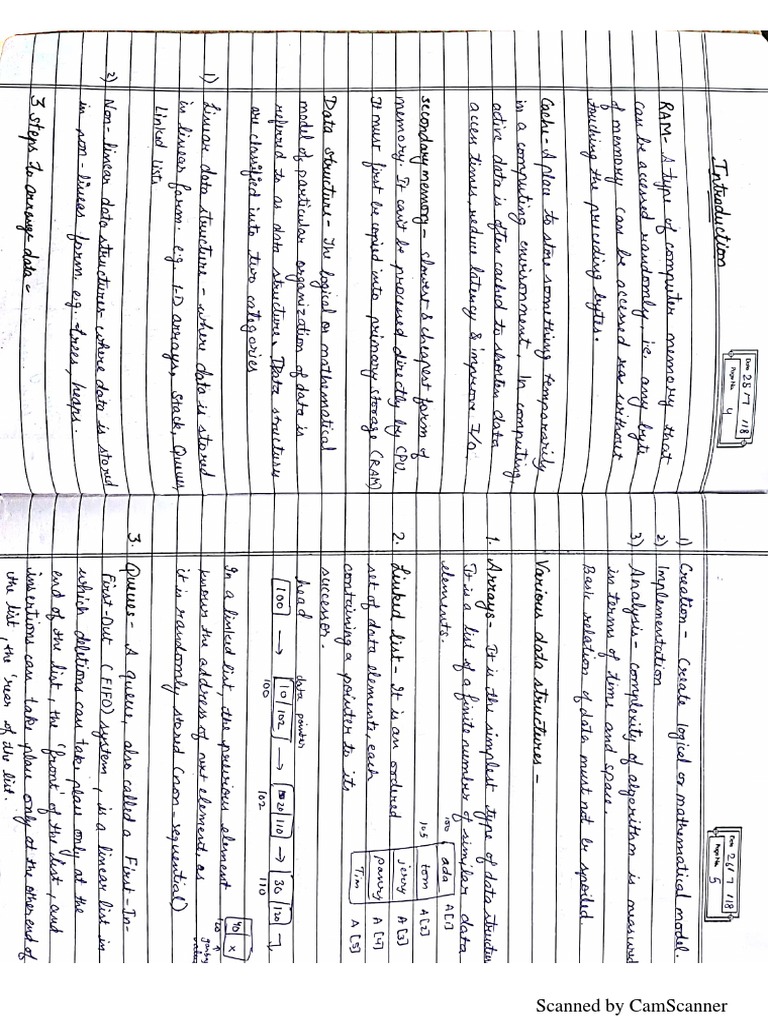 Introduction
Date 25/7/18
Page No. 4
RAM - A type of computer memory that
can be accessed randomly, i.e. any byte
of memory can be accessed without
touching the preceding bytes.
Cache - A place to store something temporarily
in a computing environment. In computing,
active data is often cached to shorten data
access times, reduce latency & improve I/O.
secondary memory - slowest & cheapest form of
memory. It can't be processed directly by CPU
It must first be copied into primary storage (RAM)
Data structure - The logical or mathematical
model of particular organization of data is
referred to as data structure. Data structure
are classified into two categories
1) Linear data structure - where data is stored
in linear form. e.g. 1-D arrays, Stack, Queues,
Linked list.
2) Non-linear data structures where data is stored
in non-linear form. e.g. trees, heaps.
3 steps to arrange data -
Date 26/7/18
Page No. 5
1) Creation - Create logical or mathematical model.
2) Implementation
3) Analysis - complexity of algorithm is measured
in terms of time and space.
Basic relation of data must not be spoiled.
Various data structures -
1. Arrays - It is the simplest type of data structure
It is a list of a finite number of similar data
elements.
100 ada A[1]
105 tom A[2]
jerry A[3]
A[4]
Tim A[5]
2. Linked list - It is an ordered
set of data elements, each
containing a pointer to its
successor.
head data pointer
100 → 10/102 → 20/110 → 30/120
100 102 110
40 x
120
In a linked list, the previous element
knows the address of next element, as
it is randomly stored (non-sequential)
3. Queues - A queue, also called a First-In-
First-Out (FIFO) system, is a linear list in
which deletions can take place only at the
end of the list, the 'front' of the list, and
insertions can take place only at the other end of
the list, the 'rear' of the list.
Scanned by CamScanner